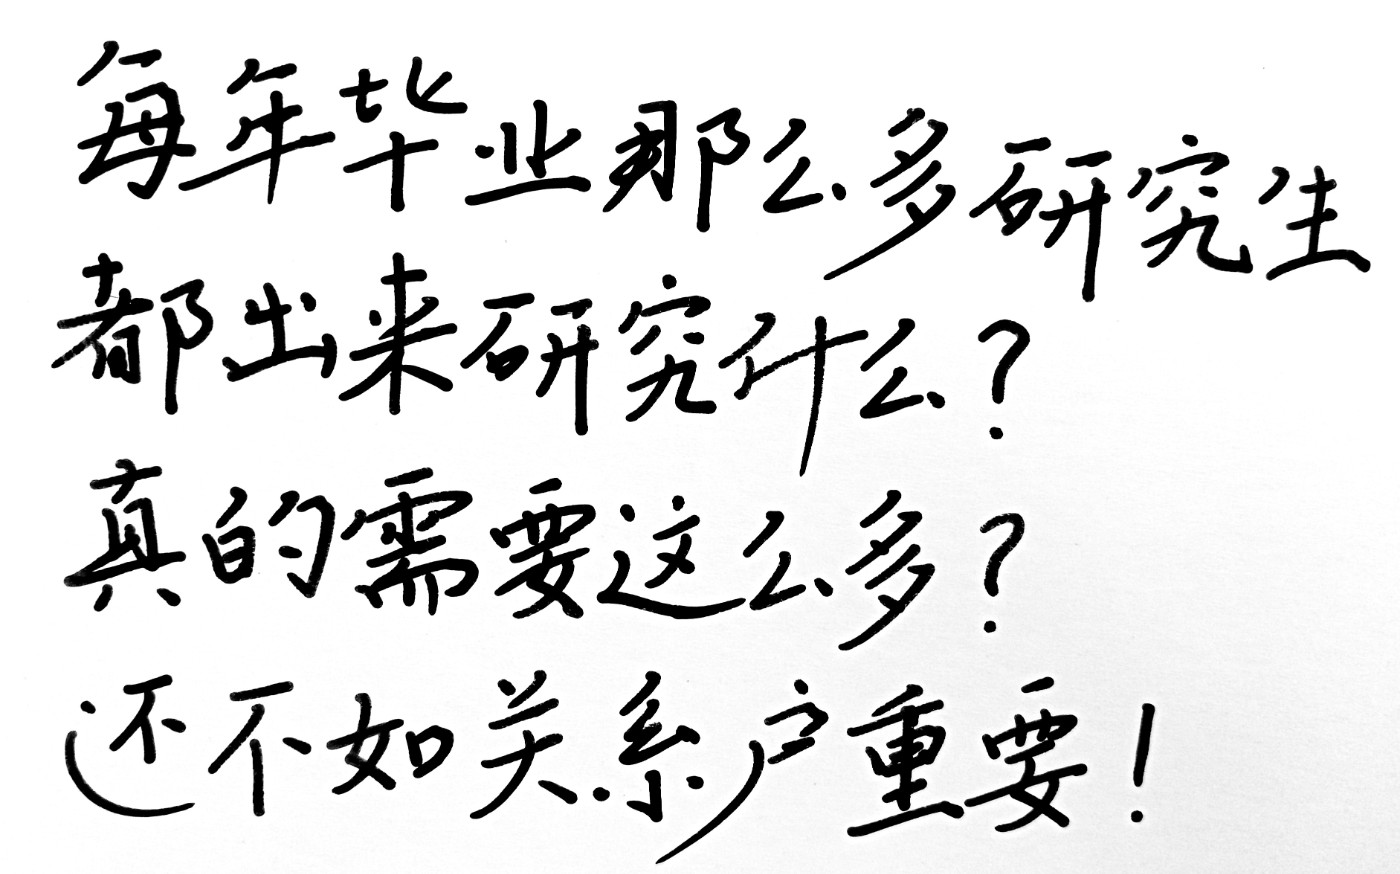 每年毕业那么多研究生
都出来研究什么?
真的需要这么多?
还不如关系户重要!